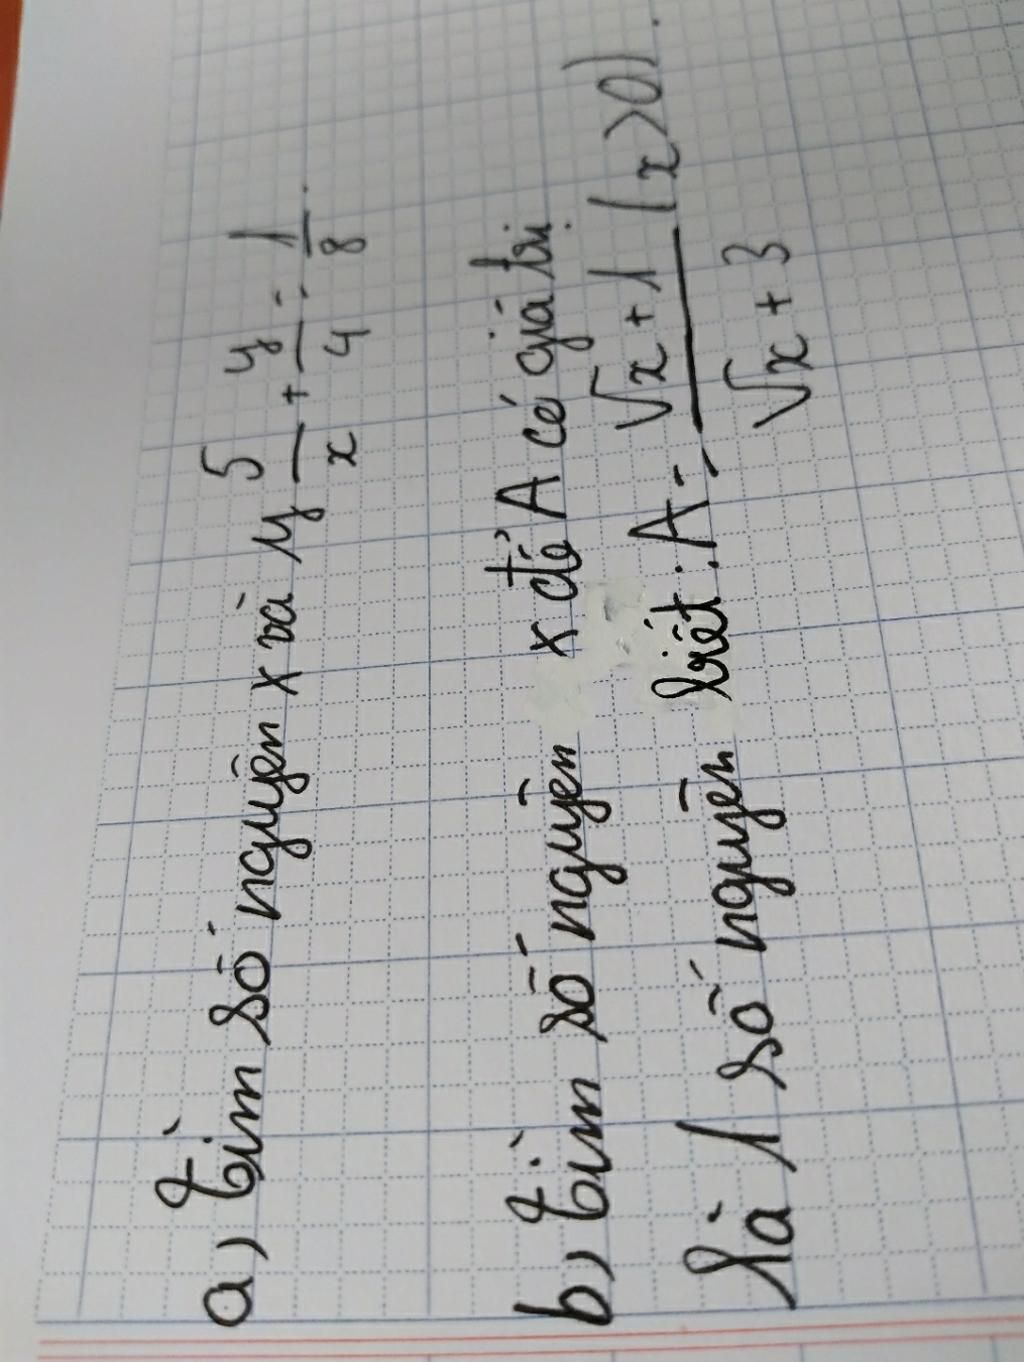 a) tìm số nguyên x và y 5/x + y/4 = 1/8.
b) tìm số nguyên x để A có giá trị
là 1 số nguyên biết : A = √x + 1 / √x + 3 (x > 0).